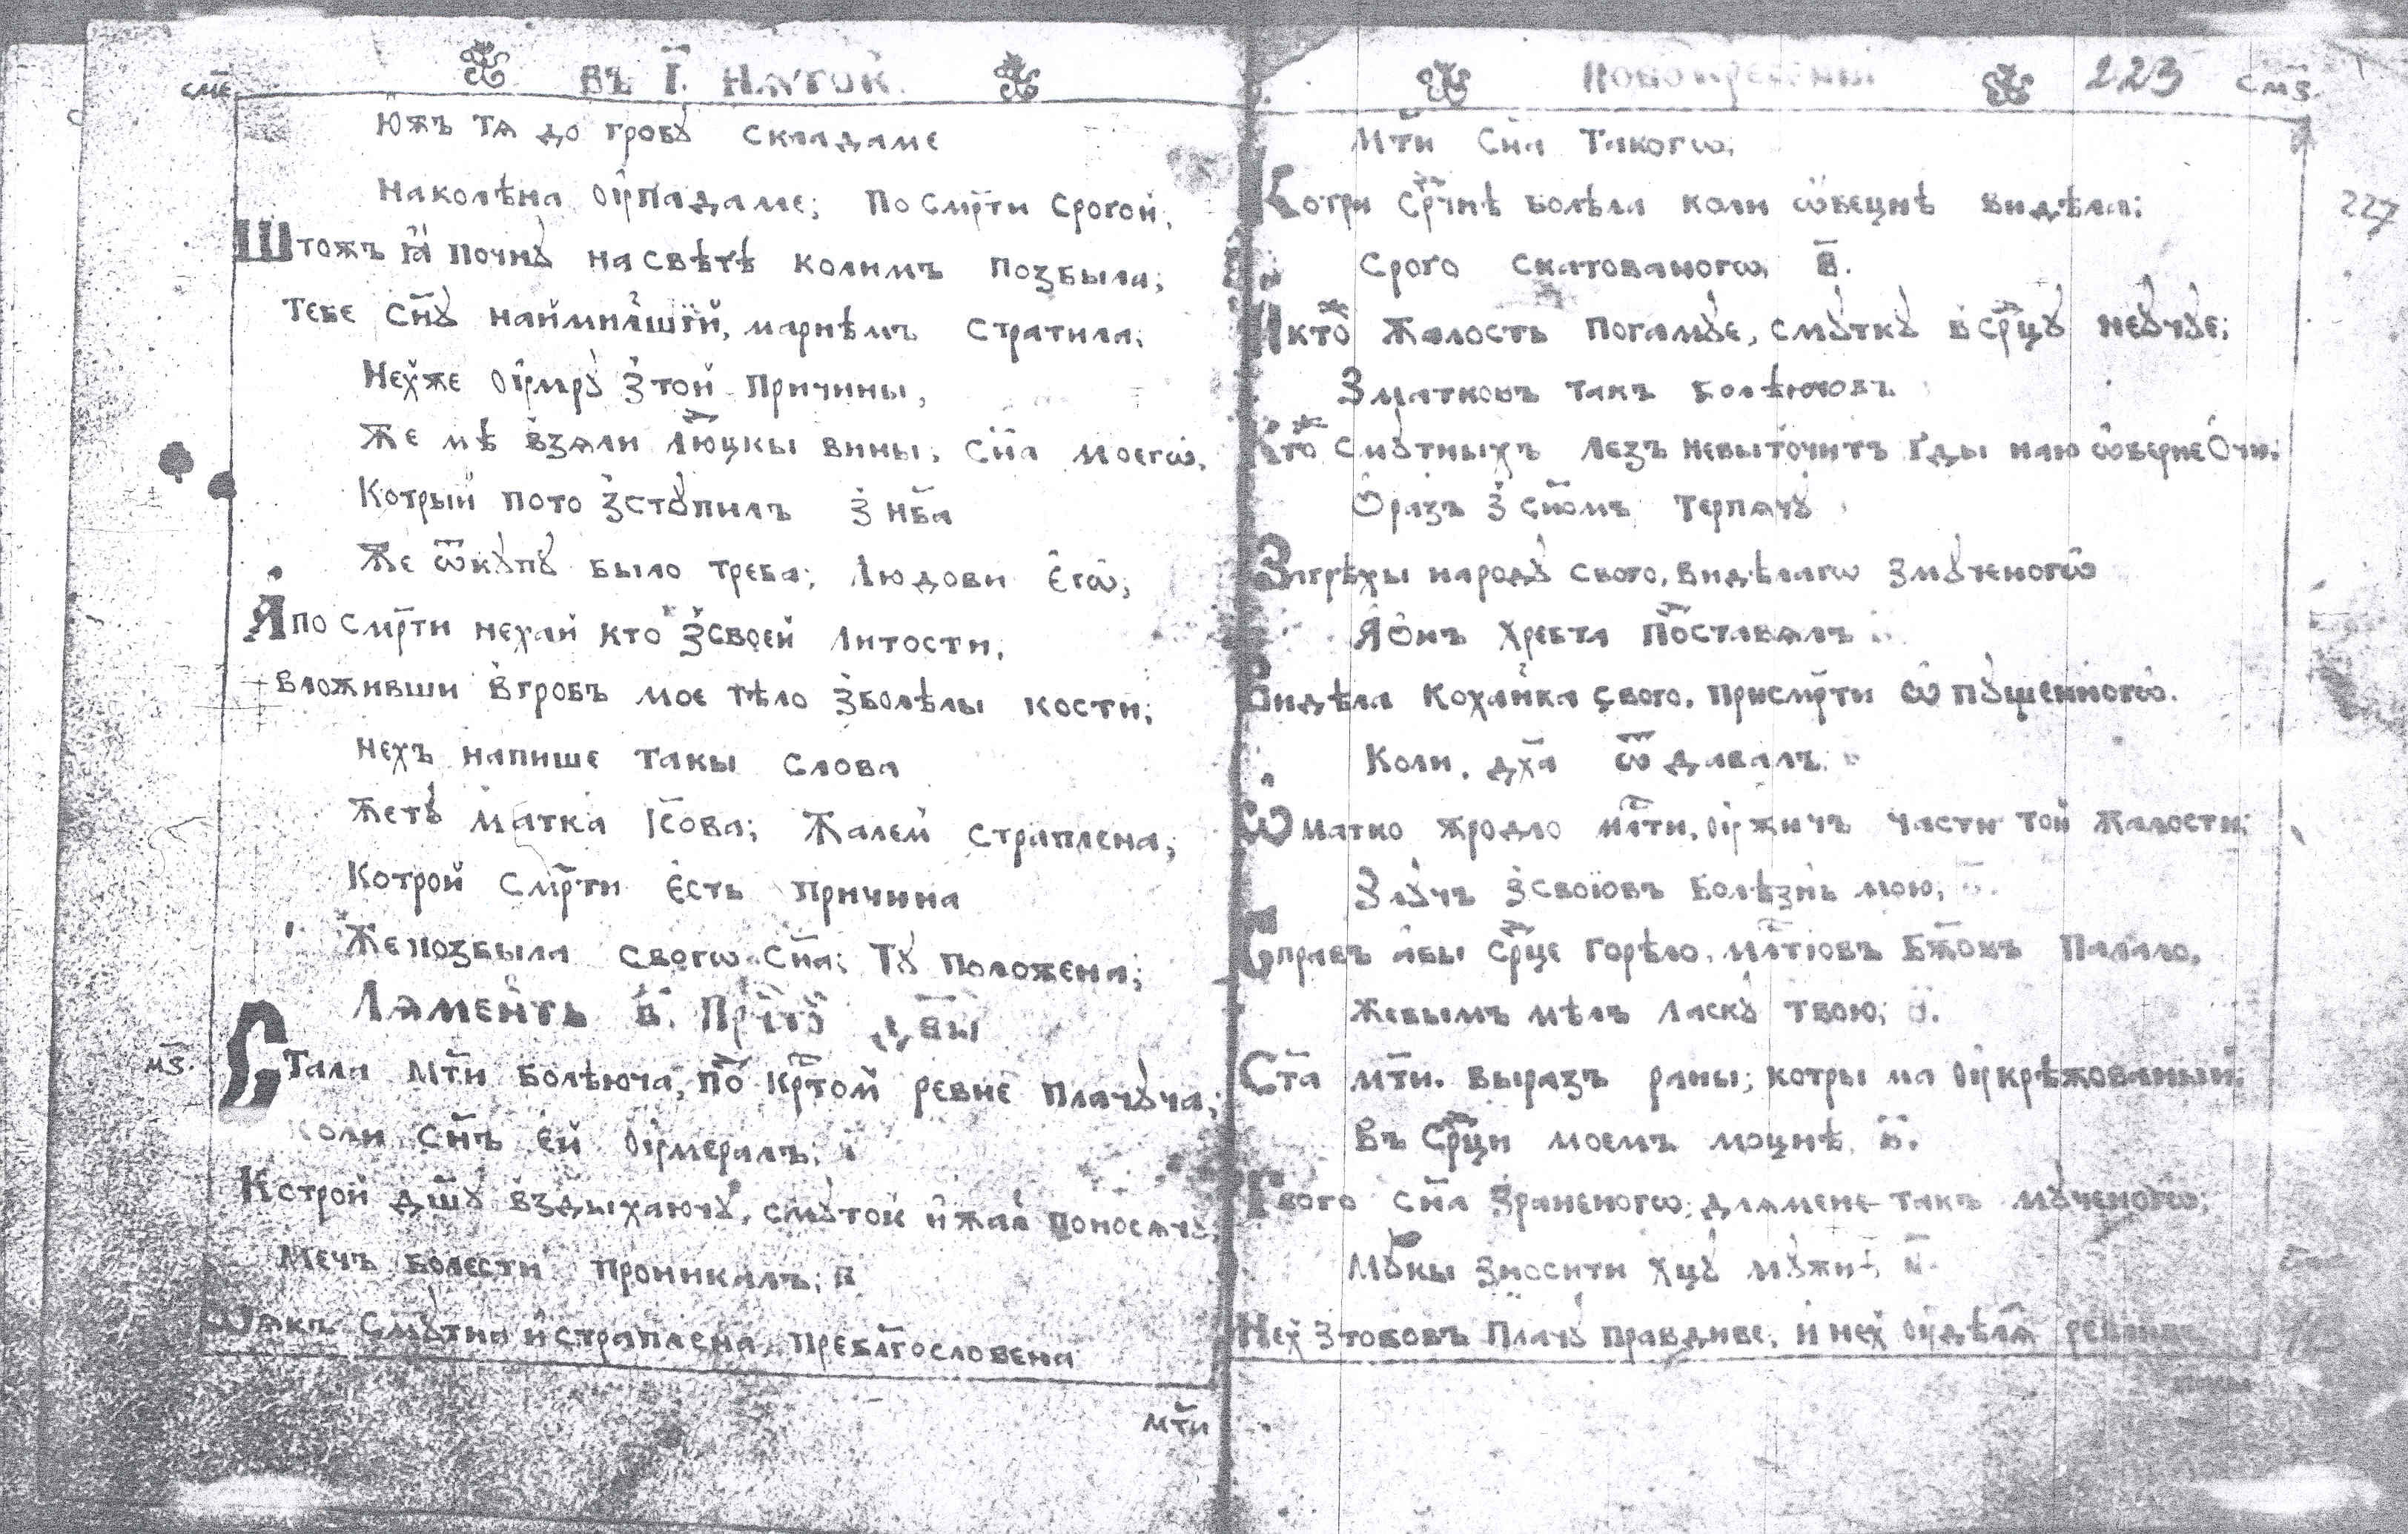 сме въ І. Пѧток.
Южъ тѧ до гробꙋ складаме
На колѣна оупадаме; По смр҃ти срогой,
Штожъ ꙗ почнꙋ на свѣтѣ колимъ позбыла;
Тебе сн҃ꙋ наймилшїй, марнѣмъ стратила;
Нехже оумрꙋ з той причины,
Же мѣ взѧли люцкы вины, сн҃а моегѡ,
Котрый пото зстꙋпилъ з нб҃а
Же ѿкꙋпꙋ было треба; Людови егѡ;
Ѧ по смр҃ти нехай кто з своей литости,
Вложивши в гробъ мое тѣло зболѣлы кости;
Нехъ напише такы слова
Же тꙋ матка Іс҃ова; Жалем страплена;
Котрой смр҃ти есть причина
Же позбыла свогѡ сн҃а; Тꙋ положена;
Лѧментъ в҃. Пр҃стой дв҃ы
мѕ. Стала мт҃и болѣюча, по кр҃том ревне плачꙋча;
Коли сн҃ъ ей оумералъ;
Котрой дш҃ꙋ вздыхаючꙋ, смꙋток и жал поносѧчꙋ,
Мечъ болести проникалъ; в҃
Ѡ ѧкъ смꙋтна и страплена, пребл҃гословена
мт҃и
223 смѕ.
Мт҃и сн҃а такогѡ;
Котри ср҃чнѣ болѣла коли ѡбецнѣ видѣла;
227
Срого скатованогѡ, в҃.
И кто жалость погамꙋе, смꙋткꙋ в ср҃цꙋ не ꙋчꙋе;
З матковъ такъ болѣючовъ
Кто смꙋтныхъ лезъ невыточитъ гды наю ѡберне очи;
Ѡразъ з сн҃омъ терпѧчꙋ
За грѣхы народꙋ свого, видѣлагѡ змꙋченогѡ
Ѧ онъ хребта поставѧлъ
Видѣла коханка свого, при смр҃ти ѡпꙋщенногѡ.
Коли, дх҃а ѿдавалъ.
Ѡ матко жродло мл҃сти, оужичъ части той жалости;
Злꙋчъ з своїовъ болѣзнь мою;
Справъ абы ср҃це горѣло, мл҃стїовъ бж҃овъ палало,
Же вымъ мѣлъ ласкꙋ твою;
Ст҃а мт҃и. выразъ раны; котры ма оукрѣжованый;
Въ ср҃ци моемъ моцнѣ, в҃.
Твого сн҃а зраненогѡ; длѧ мене такъ мꙋченогѡ;
Мꙋкы зносити хцꙋ мꙋжнѣ,
Нех з тобовъ плачꙋ правдиве, и нех оудѣлѧ